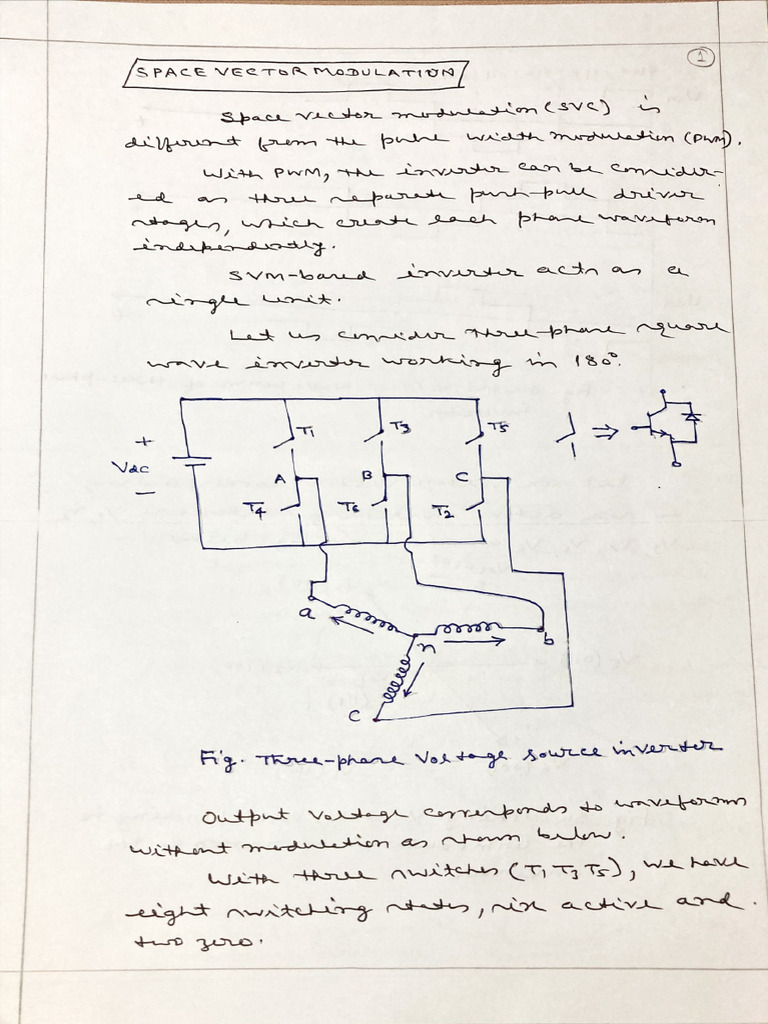 1
SPACE VECTOR MODULATION
Space vector modulation (SVC) is
different from the pulse width modulation (PWM).
With PWM, the inverter can be consider-
ed as three separate push-pull driver
stages, which create each phase waveform
independently.
SVM-based inverter acts as a
single unit.
Let us consider three-phase square
wave inverter working in 180°.
T1 T3 T5
+
Vdc
−
A B C
T4 T6 T2
⇒
a n b
c
Fig. Three-phase Voltage source inverter
Output voltage corresponds to waveforms
without modulation as shown below.
With three switches (T1 T3 T5), we have
eight switching states, six active and
two zero.